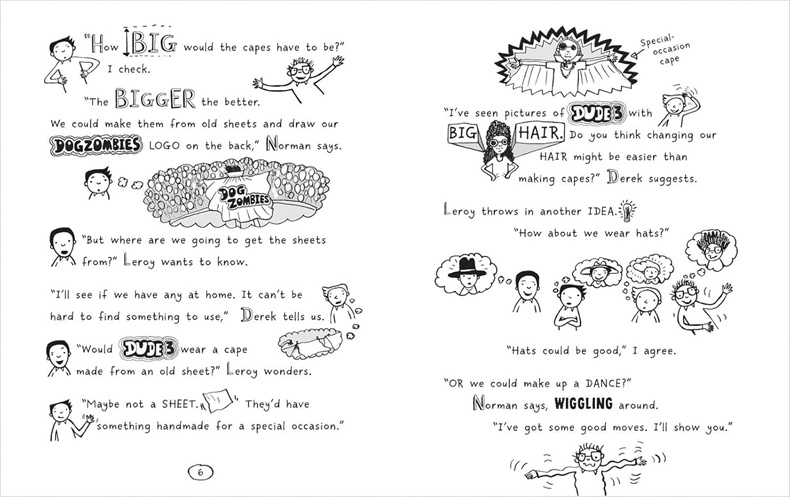 "How BIG would the capes have to be?"
I check.
"The BIGGER the better.
We could make them from old sheets and draw our
DOGZOMBIES LOGO on the back," Norman says.
DOG
ZOMBIES
"But where are we going to get the sheets
from?" Leroy wants to know.
"I'll see if we have any at home. It can't be
hard to find something to use," Derek tells us.
"Would DUDE3 wear a cape
made from an old sheet?" Leroy wonders.
"Maybe not a SHEET. They'd have
something handmade for a special occasion."
6
Special-
occasion
cape
"I've seen pictures of DUDE3 with
BIG HAIR. Do you think changing our
HAIR might be easier than
making capes?" Derek suggests.
Leroy throws in another IDEA.
"How about we wear hats?"
"Hats could be good," I agree.
"OR we could make up a DANCE?"
Norman says, WIGGLING around.
"I've got some good moves. I'll show you."